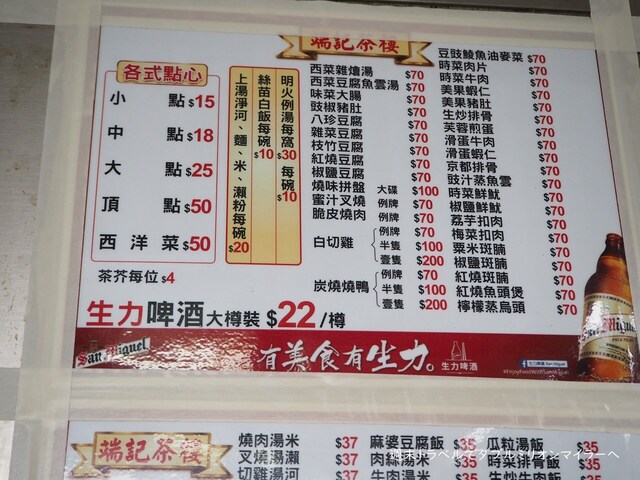 端記茶樓
各式點心
小 點 $15
中 點 $18
大 點 $25
頂 點 $50
西洋菜 $50
茶芥每位 $4
明火例湯每窩 $30 每碗 $10
絲苗白飯每碗 $10
上湯淨河、麵、米、瀨粉每碗 $20
西菜雜燴湯 $70
西菜豆腐魚雲湯 $70
味菜大腸 $70
豉椒豬肚 $70
八珍豆腐 $70
雜菜豆腐 $70
枝竹豆腐 $70
紅燒豆腐 $70
椒鹽豆腐 $70
燒味拼盤 大碟 $100
蜜汁叉燒 例牌 $70
脆皮燒肉 例牌 $70
白切雞 例牌 $70
半隻 $100
壹隻 $200
炭燒燒鴨 例牌 $70
半隻 $100
壹隻 $200
豆豉鯪魚油麥菜 $70
時菜肉片 $70
時菜牛肉 $70
美果蝦仁 $70
美果豬肚 $70
生炒排骨 $70
芙蓉煎蛋 $70
滑蛋牛肉 $70
滑蛋蝦仁 $70
京都排骨 $70
豉汁蒸魚雲 $70
時菜鮮魷 $70
椒鹽鮮魷 $70
荔芋扣肉 $70
梅菜扣肉 $70
粟米斑腩 $70
椒鹽斑腩 $70
紅燒斑腩 $70
紅燒魚頭煲 $70
檸檬蒸烏頭 $70
生力啤酒大樽裝 $22/樽
San Miguel
有美食有生力。
生力啤酒
生力啤酒 San Miguel
San Miguel
端記茶樓
燒肉湯米 $37
叉燒湯瀨 $37
切雞湯河 $37
麻婆豆腐飯 $35
肉絲湯米 $35
牛肉湯米 $35
瓜粒湯飯 $35
時菜排骨飯 $35
生炒牛肉飯 $35
週末トラベルでダブルミリオンマイラーへ